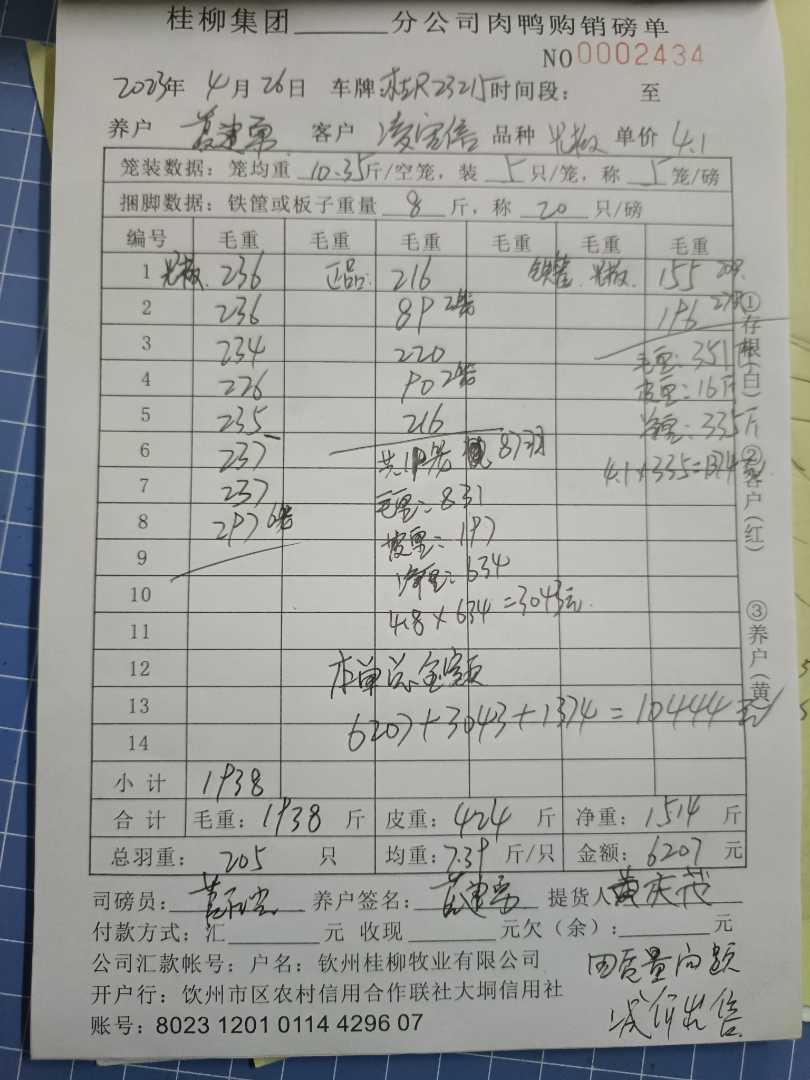 桂柳集团______分公司肉鸭购销磅单
NO 0002434
2023年 4月26日 车牌:桂R23215 时间段: 至
养户 客户 凌宝信 品种 光板 单价 4.1
笼装数据: 笼均重 10.35 斤/空笼, 装 5 只/笼, 称 5 笼/磅
捆脚数据: 铁筐或板子重量 8 斤, 称 20 只/磅
编号 毛重 毛重 毛重 毛重 毛重 毛重
1 光板. 236 正品: 216 铁筐 光板. 155
2 236 89 2笼 196
3 234 220 毛重: 351斤
4 226 90 2笼 皮重: 16斤
5 235 216 净重: 335斤
6 237 共19笼 87羽
7 237 毛重: 831 4.1×335=1374元
8 297 6笼 皮重: 197
9 净重: 634
10 4.8×634=3043元.
11
12 本单总金额
13 6207+3043+1374=10444元
14
小计 1938
合计 毛重: 1938 斤 皮重: 424 斤 净重: 1514 斤
总羽重: 205 只 均重: 7.39 斤/只 金额: 6207 元
司磅员: 养户签名: 提货人 黄庆茂
付款方式: 汇______元 收现______元欠(余):______元
公司汇款帐号: 户名: 钦州桂柳牧业有限公司
开户行: 钦州市区农村信用合作联社大垌信用社
账号: 8023 1201 0114 4296 07
因质量问题
减价出售
①存根(白) ②客户(红) ③养户(黄)